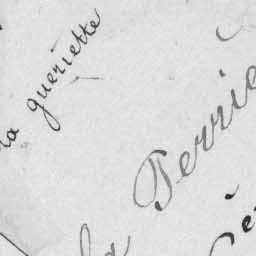 la gueriette
la Perrie